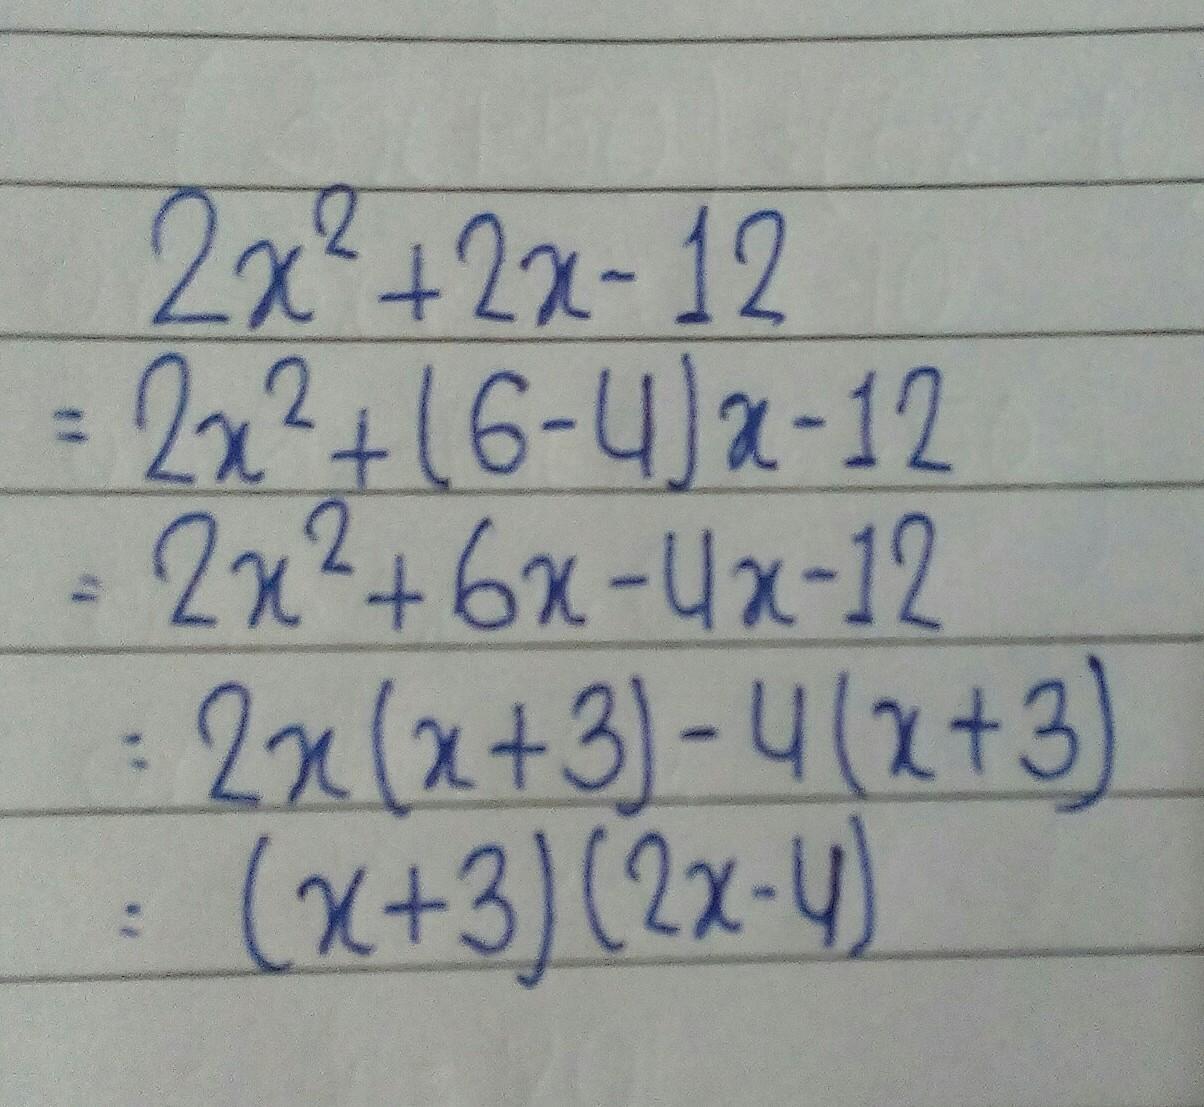 2x² + 2x - 12
= 2x² + (6 - 4)x - 12
= 2x² + 6x - 4x - 12
= 2x(x + 3) - 4(x + 3)
= (x + 3)(2x - 4)